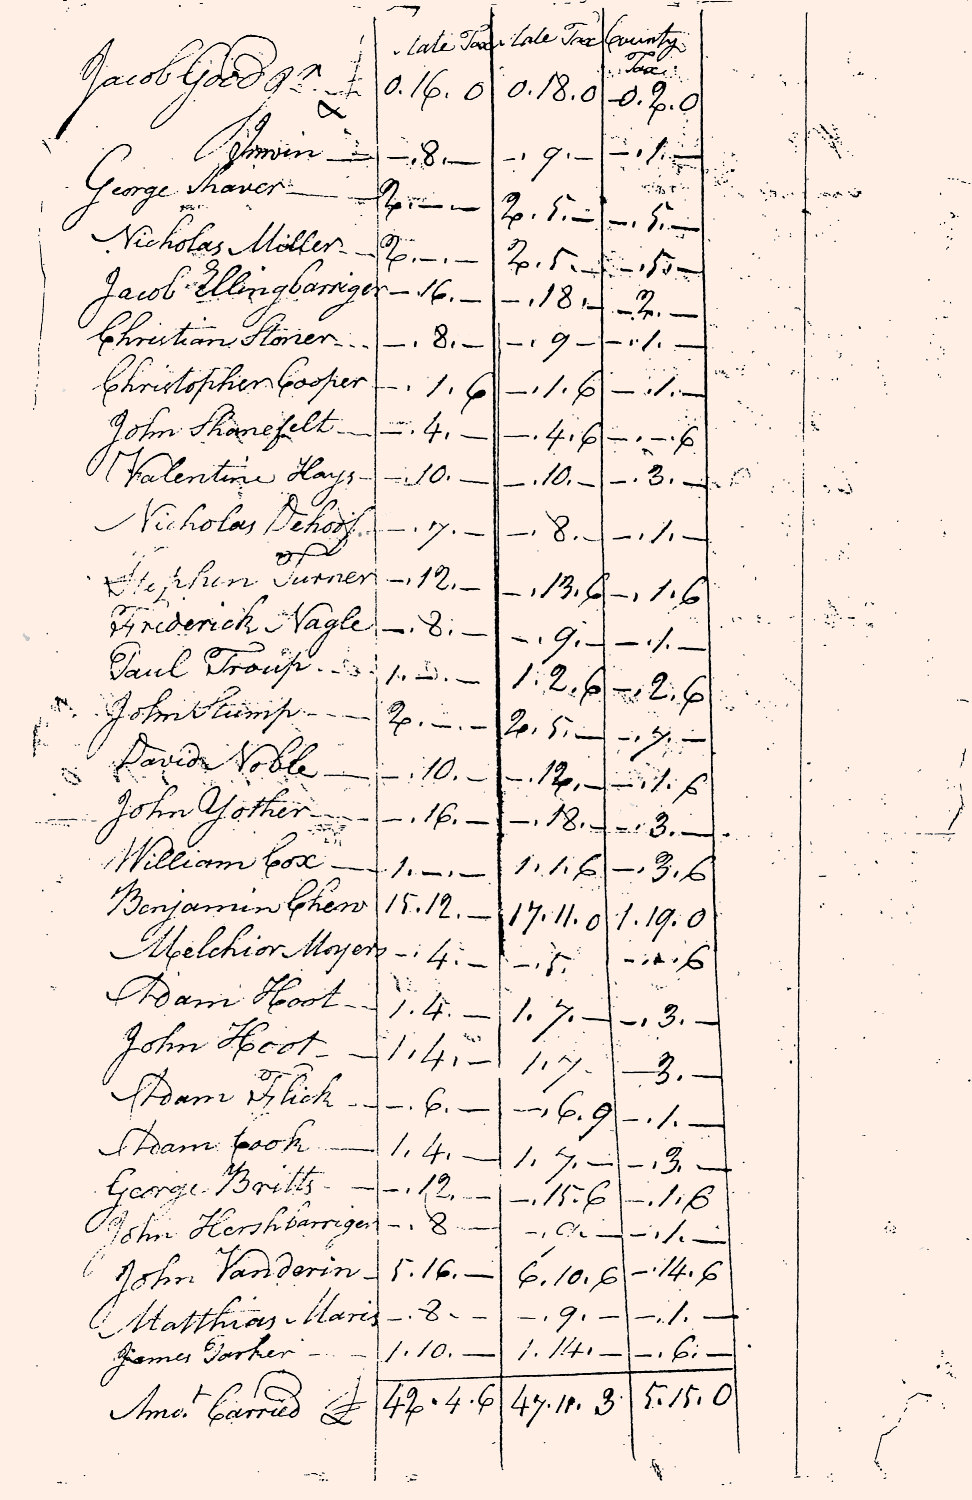 State Tax State Tax County Tax
Jacob Good £ 0.16.0 0.18.0 -0.2.0
Irwin — -.8.— -.9.— -.1.—
George Shaver — 2.—.— 2.5.— -.5.—
Nicholas Miller — 2.—.— 2.5.— -.5.—
Jacob Ellingbarriger -.16.— -.18.— -.2.—
Christian Stoner -.8.— -.9.— -.1.—
Christopher Cooper -.1.6 -.1.6 -.1.—
John Shanefelt — -.4.— -.4.6 -.-.6
Valentine Hays -.10.— -.10.— -.3.—
Nicholas Dehoof -.7.— -.8.— -.1.—
Stephen Turner -.12.— -.13.6 -.1.6
Friderick Nagle -.8.— -.9.— -.1.—
Paul Troup 1.—.— 1.2.6 -.2.6
John Stump 2.—.— 2.5.— -.7.—
David Noble — -.10.— -.12.— -.1.6
John Yother — -.16.— -.18.— -.3.—
William Cox — 1.—.— 1.1.6 -.3.6
Benjamin Chew 15.12.— 17.11.0 1.19.0
Melchior Moyers -.4.— -.5. -.-.6
Adam Hoot 1.4.— 1.7.— -.3.—
John Hoot 1.4.— 1.7. —3.—
Adam Flick -.6.— -.6.9 -.1.—
Adam Cook — 1.4.— 1.7.— -.3.—
George Britts -.12.— -.15.6 -.1.6
John Hershbarriger -.8 — -.9.— -.1.—
John Vanderin 5.16.— 6.10.6 -.14.6
Matthias Maris -.8.- -.9.— -.1.—
James Parker 1.10.— 1.14.— -.6.—
Amo.t Carried £ 42.4.6 47.18.3 5.15.0